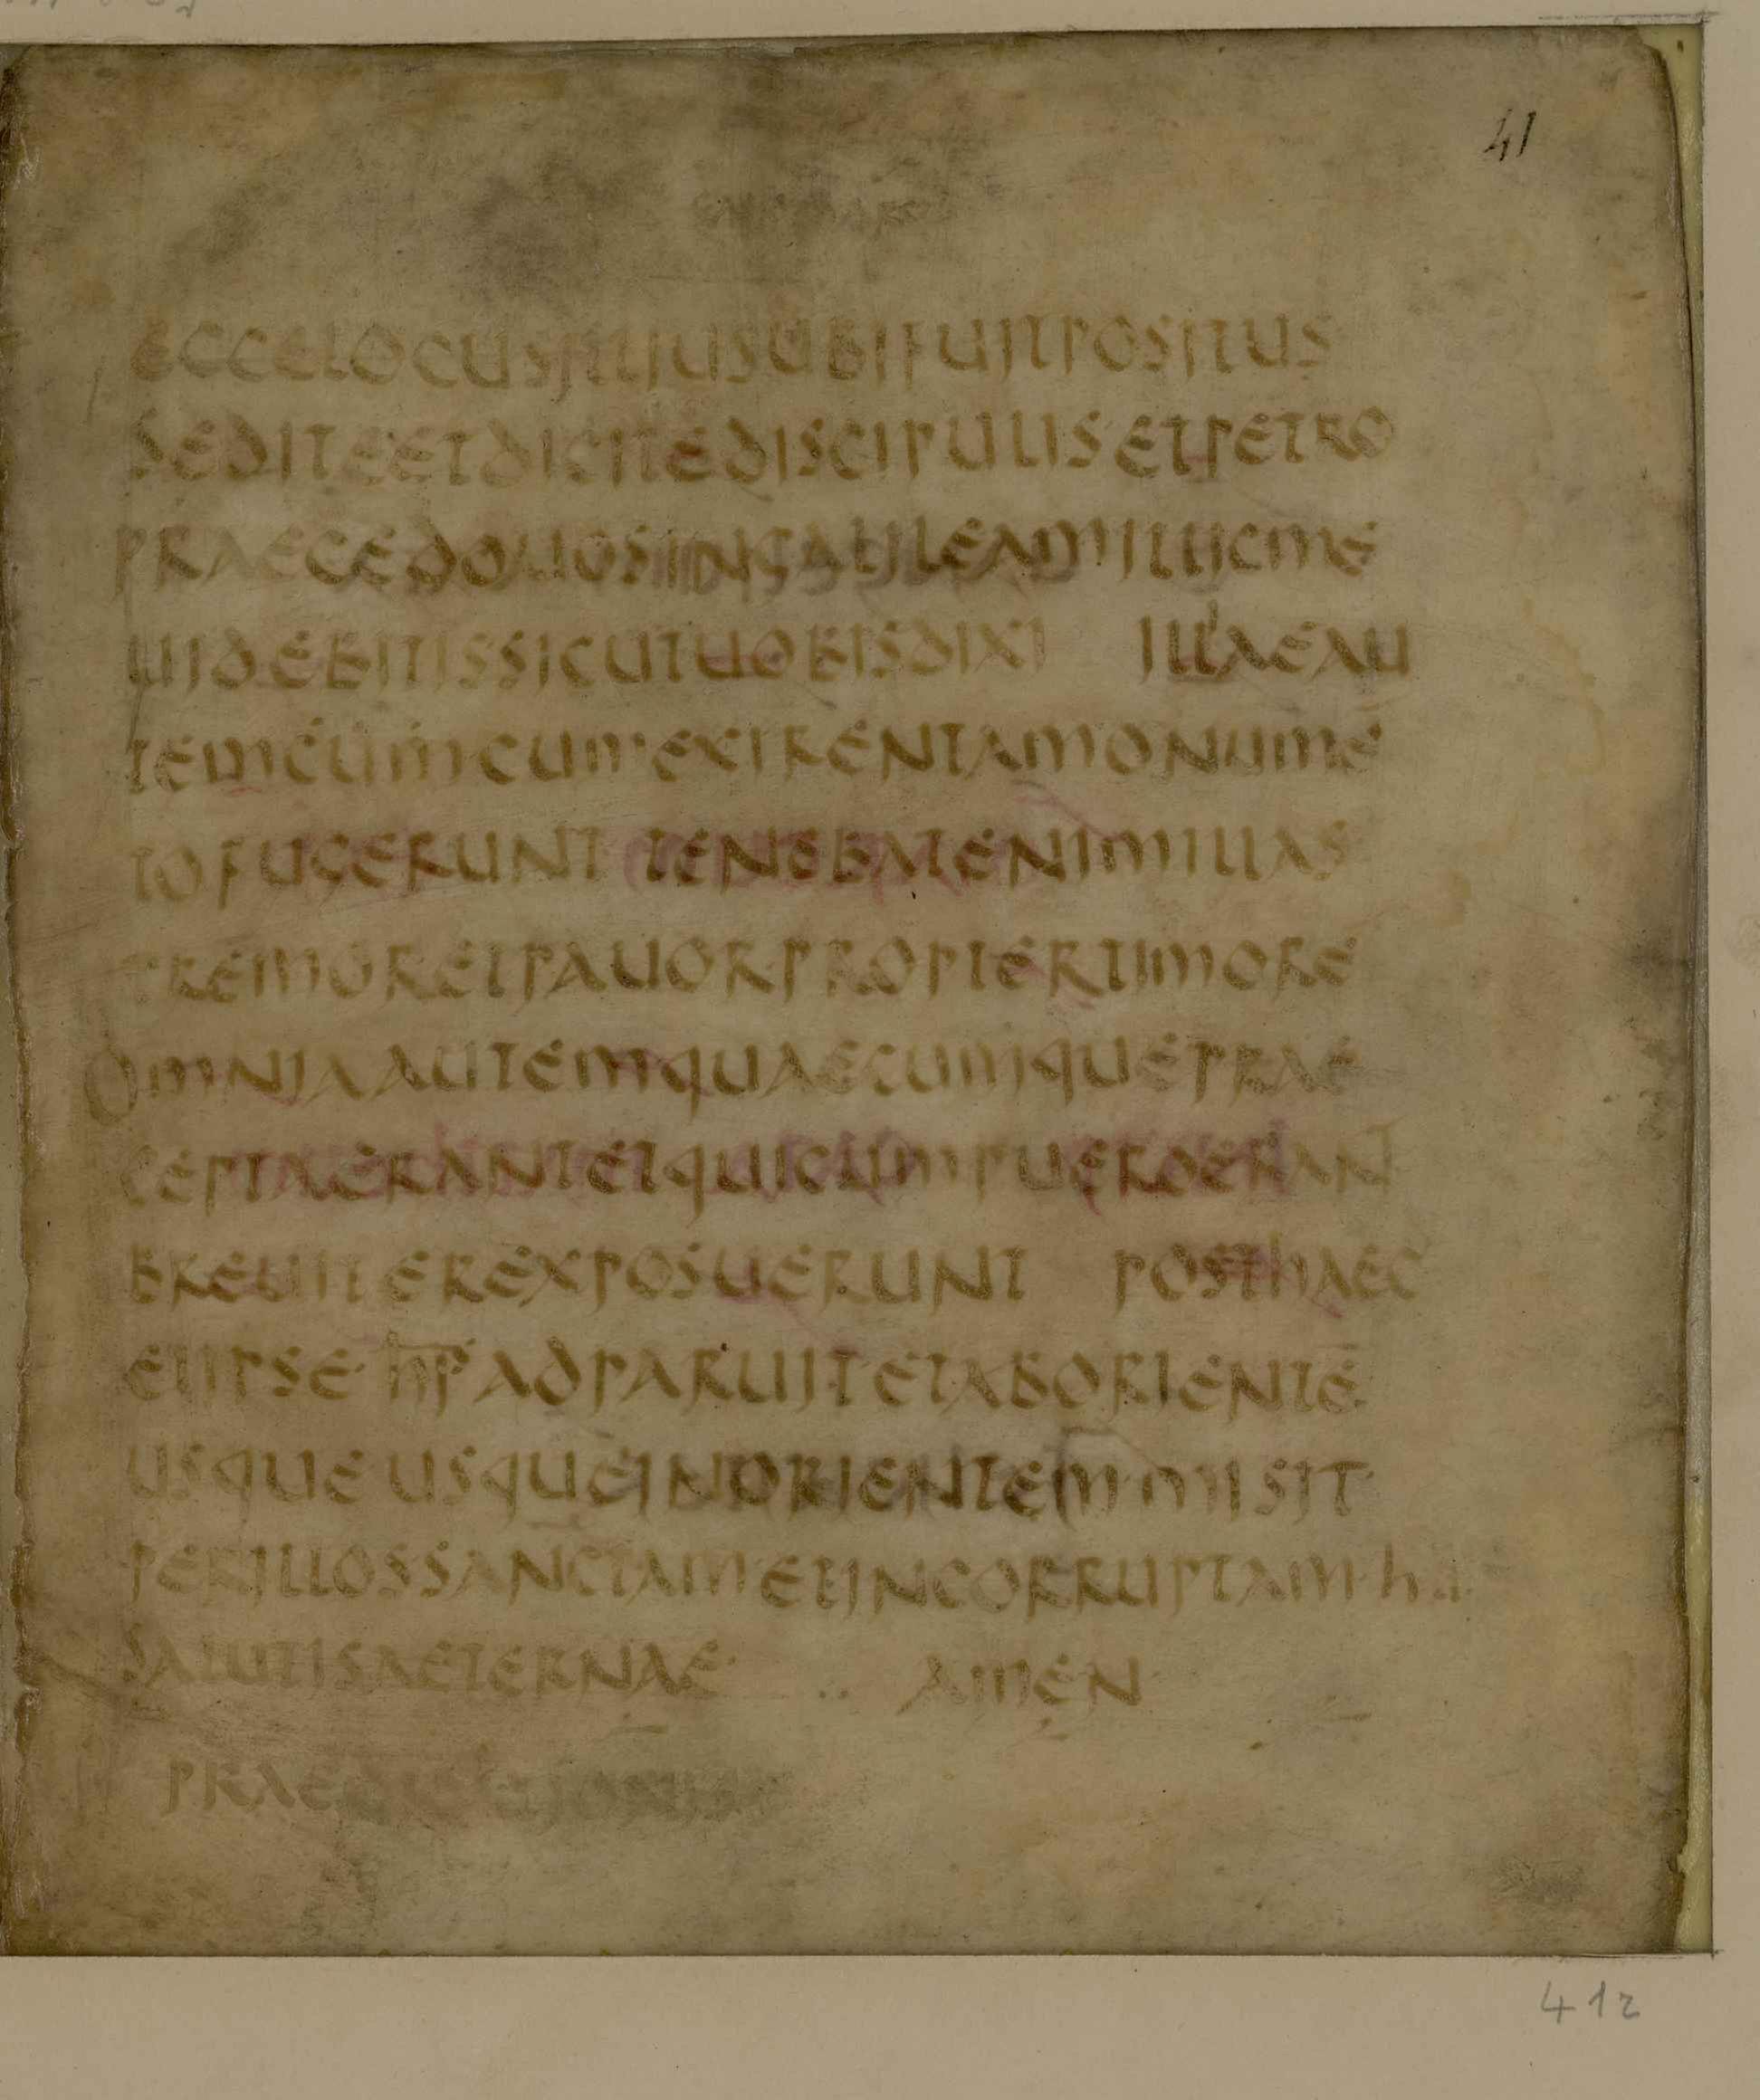 41
ECCE LOCUS ILLIUS UBI FUIT POSITUS
SED ITE ET DICITE DISCIPULIS ET PETRO
PRAECEDO UOS IN GALILEAM ILLIC ME
UIDEBITIS SICUT UOBIS DIXI ILLAE AU
TEM CUM CUM EXIRENT A MONUME
TO FUGERUNT TENEBAT ENIM ILLAS
TREMOR ET PAUOR PROPTER TIMORE
OMNIA AUTEM QUAECUMQUE PRAE
CEPTA ERANT ET QUI CUM PUERO ERANT
BREUITER EXPOSUERUNT POST HAEC
ET IPSE HIS ADPARUIT ET AB ORIENTE
USQUE USQUE IN ORIENTEM MISIT
PER ILLOS SANCTAM ET INCORRUPTAM
SALUTIS AETERNAE AMEN
412